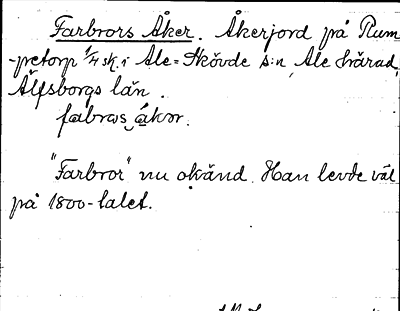 Farbrors Åker. Åkerjord på Rum
-pretorp 1/4 sk. i Ale=Skövde s:n, Ale härad,
Älfsborgs län.
fabras åkor.
"Farbror" nu okänd. Han levde väl
på 1800-talet.